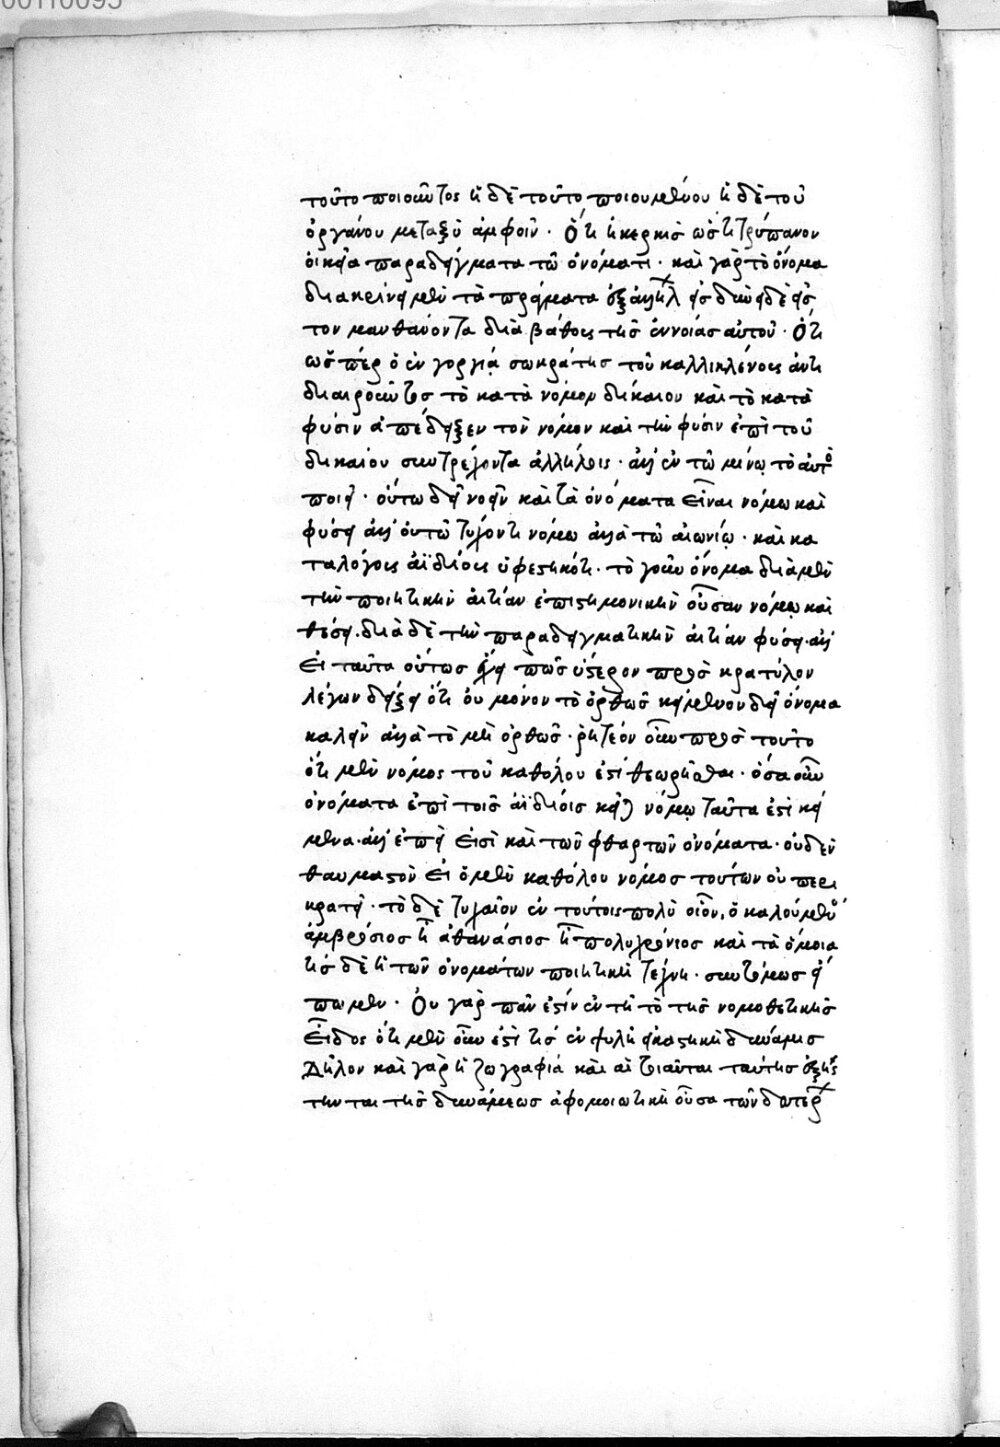 τοῦτο ποιοῦντος ἡ δὲ τοῦτο ποιουμένου ἡ δὲ τοῦ
ὀργάνου μεταξὺ ἀμφοῖν· Ὅτι ἡ κερκὶς ὡς τὸ τρύπανον
οἰκεῖα παραδείγματα τῷ ὀνόματι· καὶ γὰρ τὸ ὄνομα
διακρίνει μὲν τὰ πράγματα
τον μανθάνοντα διὰ βάθους τῆς ἐννοίας αὐτοῦ· Ὅτι
ὥσπερ ὁ ἐν γοργίᾳ σωκράτης τοῦ καλλικλέους ἀντι
διαιροῦντος τὸ κατὰ νόμον δίκαιον καὶ τὸ κατὰ
φύσιν ἀπέδειξεν τὸν νόμον καὶ τὴν φύσιν ἐπὶ τοῦ
δικαίου συντρέχοντα ἀλλήλοις· ἀλλ' ἐν τῷ μίνῳ τὸ αὐτὸ
ποιεῖ· οὕτω δεῖ νοεῖν καὶ τὰ ὀνόματα εἶναι νόμω καὶ
φύσει ἀλλ' οὐ τῶ τυχόντι νόμω ἀλλὰ τῶ αἰωνίῳ· καὶ κα
τα λόγους ἀϊδίους ὑφεστηκότι· τὸ γοῦν ὄνομα διὰ μὲν
τὴν ποιητικὴν αἰτίαν ἐπιστημονικὴν οὖσαν νόμῳ καὶ
θέσει· διὰ δὲ τὴν παραδειγματικὴν αἰτίαν φύσει· ἀλλ'
εἰ ταῦτα οὕτως ἔχει πῶς ὕστερον πρὸς κρατύλον
λέγων δείξει ὅτι οὐ μόνον τὸ ὀρθῶς κείμενον δεῖ ὄνομα
καλεῖν ἀλλὰ τὸ μὴ ὀρθῶς· ῥητέον οὖν πρὸς τοῦτο
ὅτι μὲν νόμος τοῦ καθόλου ἐστὶ θεωρῆσαι· ὅσα οὖν
ὀνόματα ἐπὶ τοῖς ἀϊδίοις κεῖται νόμῳ ταῦτα ἐστὶ κεί
μενα· ἀλλ' ἐπεὶ εἰσὶ καὶ τῶν φθαρτῶν ὀνόματα· οὐδὲν
θαυμαστὸν εἰ ὁ μὲν καθόλου νόμος τούτων οὐ περι
κρατεῖ· τὸ δὲ τυχαῖον ἐν τούτοις πολὺ οἷον, ὁ καλούμενος
ἀμβρόσιος ἢ ἀθανάσιος ἢ πολυχρόνιος καὶ τὰ ὅμοια
τίς δὲ ἡ τῶν ὀνομάτων ποιητικὴ τέχνη· συντόμως εἴ
πωμεν· Οὐ γὰρ πᾶν ἐστὶν ἐν τῇ τὸ τῆς νομοθετικῆς
εἶδος ὅτι μὲν οὖν ἐστὶ τίς ἐν ψυχῇ εἰκαστικὴ δύναμις
Δῆλον καὶ γὰρ ἡ ζωγραφία καὶ αἱ τοιαῦται ταύτης ἐξήρ
τηνται τῆς δυνάμεως ἀφομοιωτικὴ οὖσα τῶν δευτέρων